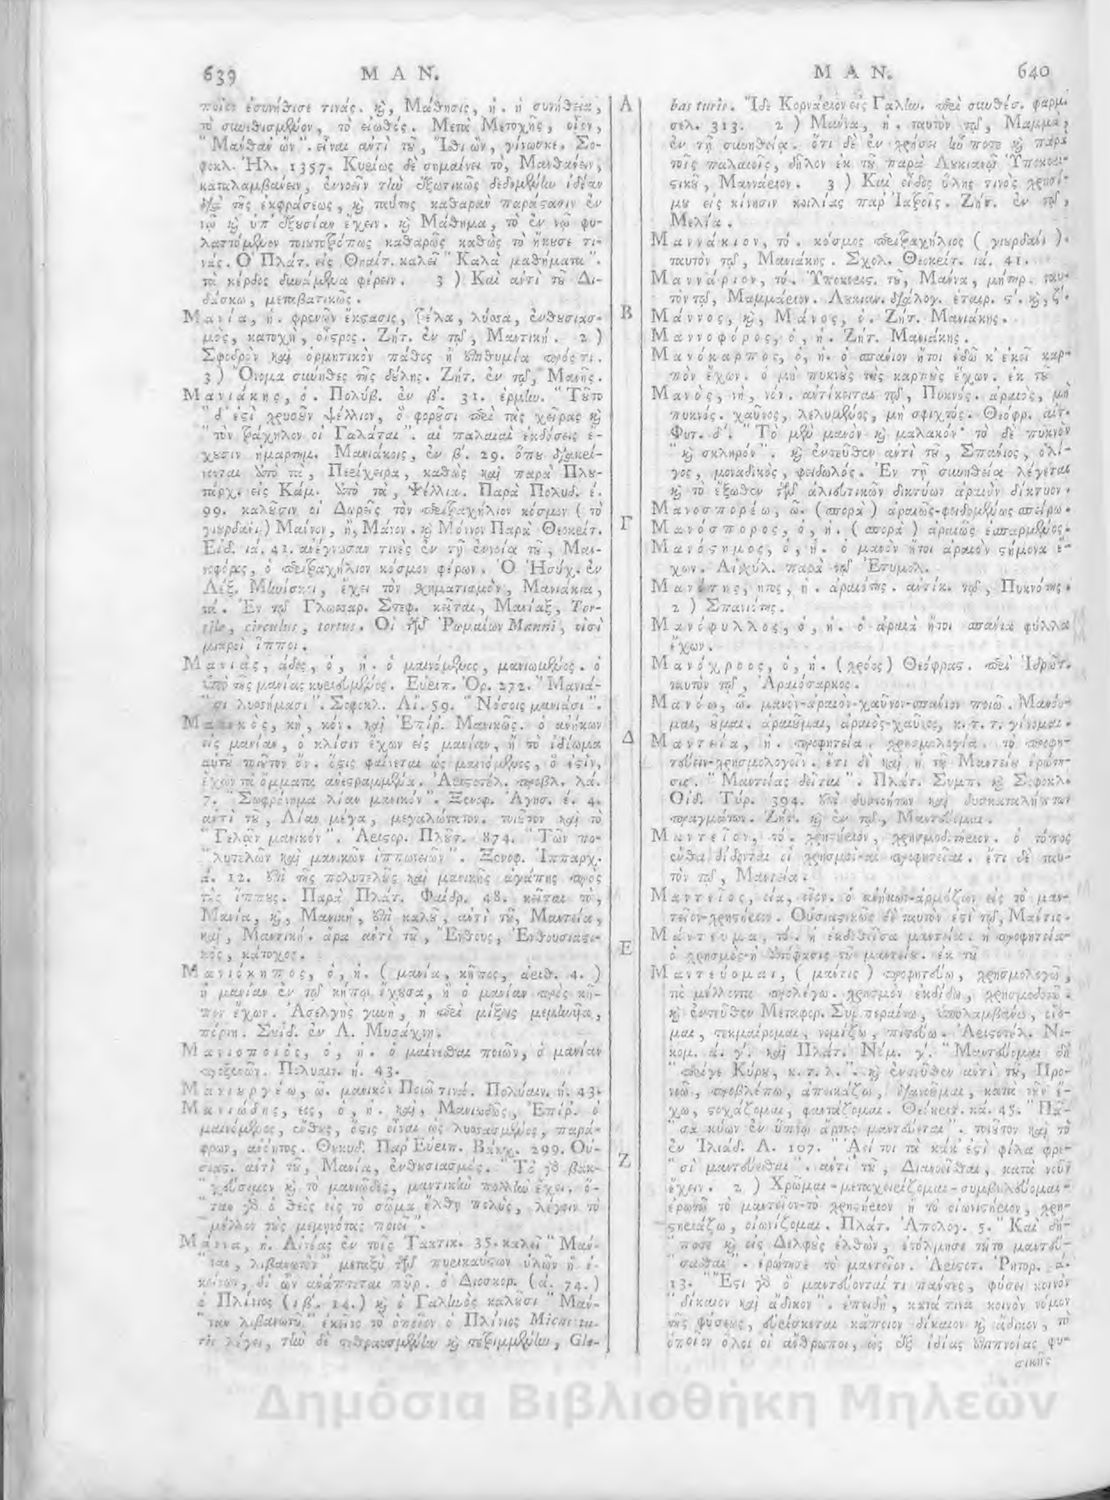 639 ΜΑΝ.
ποιεῖ ἐσυνήθισε τινάς. καὶ, Μάθησις, ἡ. ἡ συνήθεια,
τὸ συνειθισμένον, τὸ εἰωθός. Μετὰ Μετοχῆς, οἷον,
"Μάνθαν' ὤν". εἶναι ἀντὶ τοῦ, Ἴθι ὤν, γίνωσκε. Σο-
φοκλ. Ἠλ. 1357. Κυρίως δὲ σημαίνει τὸ, Μανθάνειν,
καταλαμβάνειν, ἐννοεῖν τὴν ἐξωτικῶς δεδομένην ἰδέαν
διὰ τῆς ἐκφράσεως, καὶ ταύτης καθαρὰν παράστασιν ἐν
νῷ καὶ ὑπ' ἐξουσίαν ἔχειν. καὶ Μάθημα, τὸ ἐν νῷ φυ-
λαττόμενον τοιουτοτρόπως καθαρῶς καθὼς τὸ ἤκουσέ τι-
νάς. Ὁ Πλάτ. εἰς Θεαίτ. καλεῖ "Καλὰ μαθήματα".
τὰ κέρδος δυνάμενα φέρειν. 3) Καὶ ἀντὶ τοῦ Δι-
δάσκω, μεταβατικῶς.
Μανία, ἡ. φρενῶν ἔκστασις, τρέλα, λύσσα, ἐνθουσιασ-
μὸς, κατοχὴ, οἶστρος. Ζήτ. ἐν τῷ, Μαντική. 2)
Σφοδρὸν καὶ ὁρμητικὸν πάθος ἢ ἐπιθυμία πρός τι.
3) Ὄνομα σύνηθες τῆς δούλης. Ζήτ. ἐν τῷ, Μάνης.
Μανιάκης, ὁ. Πολύβ. ἐν β'. 31. ἑρμην. "Τοῦτο
"δ' ἐστὶ χρυσοῦν ψέλλιον, ὃ φοροῦσι περὶ τὰς χεῖρας καὶ
"τὸν τράχηλον οἱ Γαλάται". αἱ παλαιαὶ ἐκδόσεις ἔ-
χουσιν ἡμαρτημ. Μανιάκοις, ἐν β'. 29. ὅπου διακεί-
νονται ὑπὸ τὰ, Περίχειρα, καθὼς καὶ παρὰ Πλου-
τάρχ. εἰς Κάμ. ὑπὸ τὰ, Ψέλλια. Παρὰ Πολυδ. έ.
99. καλοῦσιν οἱ Δωρεῖς τὸν περιτραχήλιον κόσμον (τὸ
γιορδάνι) Μαῖνον, ἢ, Μάνον. καὶ Μόννον Παρὰ Θεοκρίτ.
Εἰδ. ιά. 41. ἀνέγνωσάν τινες ἐν τῇ ἐννοίᾳ τοῦ, Μαν-
νοφόρος, ὁ περιτραχήλιον κόσμον φέρων. Ὁ Ἡσύχ. ἐν
Λέξ. ἔχει τὸν χηματισμὸν, Μανιάκια,
τά. Ἐν τῷ Γλωσσαρ. Στεφ. κεῖται, Μανίαξ, Tor-
tile, circulus, tortus. Οἱ τῶν Ῥωμαίων Manni, εἰσὶ
μικροὶ ἵπποι.
Μανιὰς, άδος, ὁ, ἡ. ὁ μαινόμενος, μανιωμένος. ὁ
ὑπὸ τῆς μανίας κυριευμένος. Εὐριπ. Ὀρ. 272. "Μανιά-
"σι λυσσήμασι". Σοφοκλ. Αἴ. 59. "Νόσοις μανιάσι".
Μανικὸς, κὴ, κόν. καὶ Ἐπίρ. Μανικῶς. ὁ ἀνήκων
εἰς μανίαν, ὁ κλίσιν ἔχων εἰς μανίαν, ἢ τὸ ἰδίωμα
αὐτοῦ τοιοῦτον ὄν. ὅστις φαίνεται ὡς μαινόμενος, ὁ ἐστὶν,
ἔχων τὰ ὄμματα ἀνεστραμμένα. Ἀριστοτέλ. προβλ. λά.
7. "Σωφρόνημα λίαν μανικόν". Ξενοφ. Ἀγησ. έ. 4.
ἀντὶ τοῦ, Λίαν μέγα, μεγαλώτατον. τοιοῦτον καὶ τὸ
"Γελᾶν μανικόν". Ἀριστοφ. Πλοῦτ. 874. "Τῶν πο-
"λυτελῶν καὶ μανικῶν ἱππωνειῶν". Ξενοφ. Ἱππαρχ.
ά. 12. ἐπὶ τῆς πολυτελοῦς καὶ μανικῆς ἀγάπης πρὸς
τὰς ἵππους. Παρὰ Πλάτ. Φαίδρ. 48. κεῖται τὸ,
Μανία, καὶ, Μανικὴ, ἐπὶ καλοῦ, ἀντὶ τοῦ, Μαντεία,
καὶ, Μαντική. ἄρα ἀντὶ τοῦ, Ἔνθους, Ἐνθουσιαστι-
κὸς, κάτοχος.
Μανιόκηπος, ὁ, ἡ. (μανία, κῆπος, ἀριθ. 4.)
ἡ μανίαν ἐν τῷ κήπῳ ἔχουσα, ἢ ὁ μανίαν πρὸς κῆ-
πον ἔχων. Ἀσελγὴς γυνὴ, ἡ περὶ μίξεις μεμηνυῖα,
πόρνη. Σουΐδ. ἐν Λ. Μυσάχνη.
Μανιοποιὸς, ὁ, ἡ. ὁ μαίνεσθαι ποιῶν, ὁ μανίαν
προξενῶν. Πολυαιν. ή. 43.
Μανιουργέω, ῶ. μανικὸν Ποιῶ τινά. Πολύαιν. ή. 43.
Μανιώδης, εος, ὁ, ἡ. καὶ, Μανιωδῶς, Ἐπίρ. ὁ
μαινόμενος, ἔνθους, ὅστις εἶναι ὡς λυσσασμένος, παρά-
φρων, ἀνόητος. Θουκυδ. Παρ' Εὐριπ. Βάκχ. 299. Οὐ-
σιας. ἀντὶ τοῦ, Μανία, ἐνθουσιασμός. "Τὸ γὰρ βακ-
"χεύσιμον καὶ τὸ μανιῶδες, μαντικὴν πολλὴν ἔχει. ὅ-
"ταν γὰρ ὁ θεὸς εἰς τὸ σῶμα ἔλθῃ πολὺς, λέγειν τὸ
"μέλλον τοὺς μεμηνότας ποιεῖ".
Μάννα, ἡ. Αἰνέας ἐν τοῖς Τακτικ. 35. καλεῖ "Μάν-
"ναν, λιβανωτὸν" μεταξὺ τῶν πυρικαύστων ὑλῶν ἢ ἐ-
κείνων, δι' ὧν ἀνάπτεται πῦρ. ὁ Διοσκορ. (ά. 74.)
ὁ Πλίνιος (ιβ'. 14.) καὶ ὁ Γαληνὸς καλοῦσι "Μάν-
"ναν λιβανωτοῦ" ἐκεῖνο τὸ ὁποῖον ὁ Πλίνιος Micas tu-
ris λέγει, τὴν δὲ τεθραυσμένην καὶ τετριμμένην, Gle-
Α
Β
Γ
Δ
Ε
Ζ
ΜΑΝ. 640
bas turis. Ἴδε Κορνάριον εἰς Γαλην. περὶ συνθέσ. φαρμ.
σελ. 313. 2) Μάννα, ἡ. ταυτὸν τῷ, Μάμμα,
ἐν τῇ συνηθείᾳ. ὅτι δὲ ἐν χρήσει ἦν ποτε καὶ παρὰ
τοῖς παλαιοῖς, δῆλον ἐκ τοῦ παρὰ Λυκιανῷ Ὑποκορι-
στικοῦ, Μαννάριον. 3) Καὶ εἶδος ὕλης τινὸς χρησί-
μου εἰς κίνησιν κοιλίας παρ' Ἰατροῖς. Ζήτ. ἐν τῷ,
Μελία.
Μαννάκιον, τό. κόσμος περιτραχήλιος (γιορδάνι).
ταυτὸν τῷ, Μανιάκης. Σχολ. Θεοκρίτ. ιά. 41.
Μαννάριον, τό. Ὑποκορισ. τοῦ, Μάννα, μήτηρ. ταυ-
τὸν τῷ, Μαμμάριον. Λυκιαν. διάλογ. ἑταιρ. ς'. καὶ, ζ'.
Μάννος, καὶ, Μάνος, ὁ. Ζήτ. Μανιάκης.
Μαννοφόρος, ὁ, ἡ. Ζήτ. Μανιάκης.
Μανόκαρπος, ὁ, ἡ. ὁ σπάνιον ἤτοι ἐδῶ κ' ἐκεῖ καρ-
πὸν ἔχων. ὁ μὴ πυκνοὺς τοὺς καρποὺς ἔχων. ἐκ τοῦ
Μανὸς, νὴ, νόν. ἀντίκειται τῷ, Πυκνός. ἀραιὸς, μὴ
πυκνός. χαῦνος, λελυμένος, μὴ σφιχτός. Θεόφρ. αἰτ.
Φυτ. δ'. "Τὸ μὲν μανὸν καὶ μαλακόν· τὸ δὲ πυκνὸν
"καὶ σκληρόν". καὶ ἐντεῦθεν ἀντὶ τοῦ, Σπάνιος, ὀλί-
γος, μοναδικὸς, φειδωλός. Ἐν τῇ συνηθείᾳ λέγεται
καὶ τὸ ἔξωθεν τῶν ἁλιευτικῶν δικτύων ἀραιὸν δίκτυον.
Μανοσπορέω, ῶ. (σπορά) ἀραιῶς-φειδομένως σπείρω.
Μανόσπορος, ὁ, ἡ. (σπορά) ἀραιῶς ἐσπαρμένος.
Μανόστημος, ὁ, ἡ. ὁ μανὸν ἤτοι ἀραιὸν στήμονα ἔ-
χων. Αἰσχύλ. παρὰ τῷ Ἐτυμολ.
Μανότης, ητος, ἡ. ἀραιότης. ἀντίκ. τῷ, Πυκνότης.
2) Σπανιότης.
Μανόφυλλος, ὁ, ἡ. ὁ ἀραιὰ ἤτοι σπάνια φύλλα
ἔχων.
Μανόχροος, ὁ, ἡ. (χρόος) Θεόφραστ. περὶ Ἱδρώτ.
ταυτὸν τῷ, Ἀραιόσαρκος.
Μανόω, ῶ. μανὸν-ἀραιὸν-χαῦνον-σπάνιον ποιῶ. Μανόο-
μαι, οῦμαι. ἀραιοῦμαι, ἀραιὸς-χαῦνος, κ. τ. τ. γίνομαι.
Μαντεία, ἡ. προφητεία, χρησμολογία. τὸ προφη-
τεύειν-χρησμολογεῖν. ἔτι δὲ καὶ ἡ τοῦ Μαντείου ἐρώτη-
σις. "Μαντείας δεῖται". Πλάτ. Συμπ. καὶ Σοφοκλ.
Οἰδ. Τύρ. 394. ἐπὶ δυσνοήτων καὶ δυσκαταλήπτων
πραγμάτων. Ζήτ. καὶ ἐν τῷ, Μαντεύομαι.
Μαντεῖον, τό. χρηστήριον, χρησμοδοτήριον. ὁ τόπος
ἔνθα δίδονται οἱ χρησμοὶ-αἱ προφητεῖαι. ἔτι δὲ ταυ-
τὸν τῷ, Μαντεία.
Μαντεῖος, εία, εῖον. ὁ ἀνήκων-ἁρμόζων εἰς τὸ μαν-
τεῖον-χρηστήριον. Οὐσιαστικῶς δὲ ταυτὸν ἐστὶ τῷ, Μάντις.
Μάντευμα, τό. ἡ ἐκδοθεῖσα μαντεία. ἡ προφητεία-
ὁ χρησμὸς-ἡ ἀπόφασις τοῦ μαντείου. ἐκ τοῦ
Μαντεύομαι, (μάντις) προφητεύω, χρησμολογῶ,
τὰ μέλλοντα προλέγω. χρησμὸν ἐκδίδω, χρησμοδοτῶ.
καὶ ἐντεῦθεν Μεταφορ. Συμπεραίνω, ὑπολαμβάνω, οἴο-
μαι, τεκμαίρομαι, νομίζω, πιστεύω. Ἀριστοτέλ. Νι-
κομ. ά. γ'. καὶ Πλάτ. Νόμ. γ'. "Μαντεύομαι δὴ
"περίγε Κύρου, κ. τ. λ.". καὶ ἐντεῦθεν ἀντὶ τοῦ, Προ-
νοῶ, προβλέπω, ἀπεικάζω, διανοοῦμαι, κατὰ νοῦν ἔ-
χω, στοχάζομαι, φαντάζομαι. Θεόκριτ. κά. 45. "Πᾶ-
"σα κύων ἐν ὕπνῳ ἄρτως μαντεύεται". τοιοῦτον καὶ τὸ
ἐν Ἰλιάδ. Α. 107. "Ἀεί τοι τὰ κάκ' ἐστὶ φίλα φρε-
"σὶ μαντεύεσθαι". ἀντὶ τοῦ, Διανοεῖσθαι, κατὰ νοῦν
ἔχειν. 2) Χρῶμαι-μεταχειρίζομαι-συμβουλεύομαι-
ἐρωτῶ τὸ μαντεῖον-τὸ χρηστήριον ἢ τὸ οἰωνιστήριον, χρη-
στηριάζω, οἰωνίζομαι. Πλάτ. Ἀπολογ. 5. "Καὶ δή-
"ποτε καὶ εἰς Δελφοὺς ἐλθὼν, ἐτόλμησε τοῦτο μαντεύ-
"σασθαι". ἐρώτησε τὸ μαντεῖον. Ἀριστοτ. Ῥητορ. ά.
13. "Ἔστι γὰρ ὃ μαντεύονταί τι πάντες, φύσει κοινὸν
"δίκαιον καὶ ἄδικον". ἐπειδὴ, κατά τινα κοινὸν νόμον
τῆς φύσεως, εὑρίσκεται κάποιον δίκαιον καὶ ἄδικον, τὸ
ὁποῖον ὅλοι οἱ ἄνθρωποι, ὡς ἐξ ἰδίας ἐπιπνοίας φυ-
σικῆς
Δημόσια Βιβλιοθήκη Μηλεών